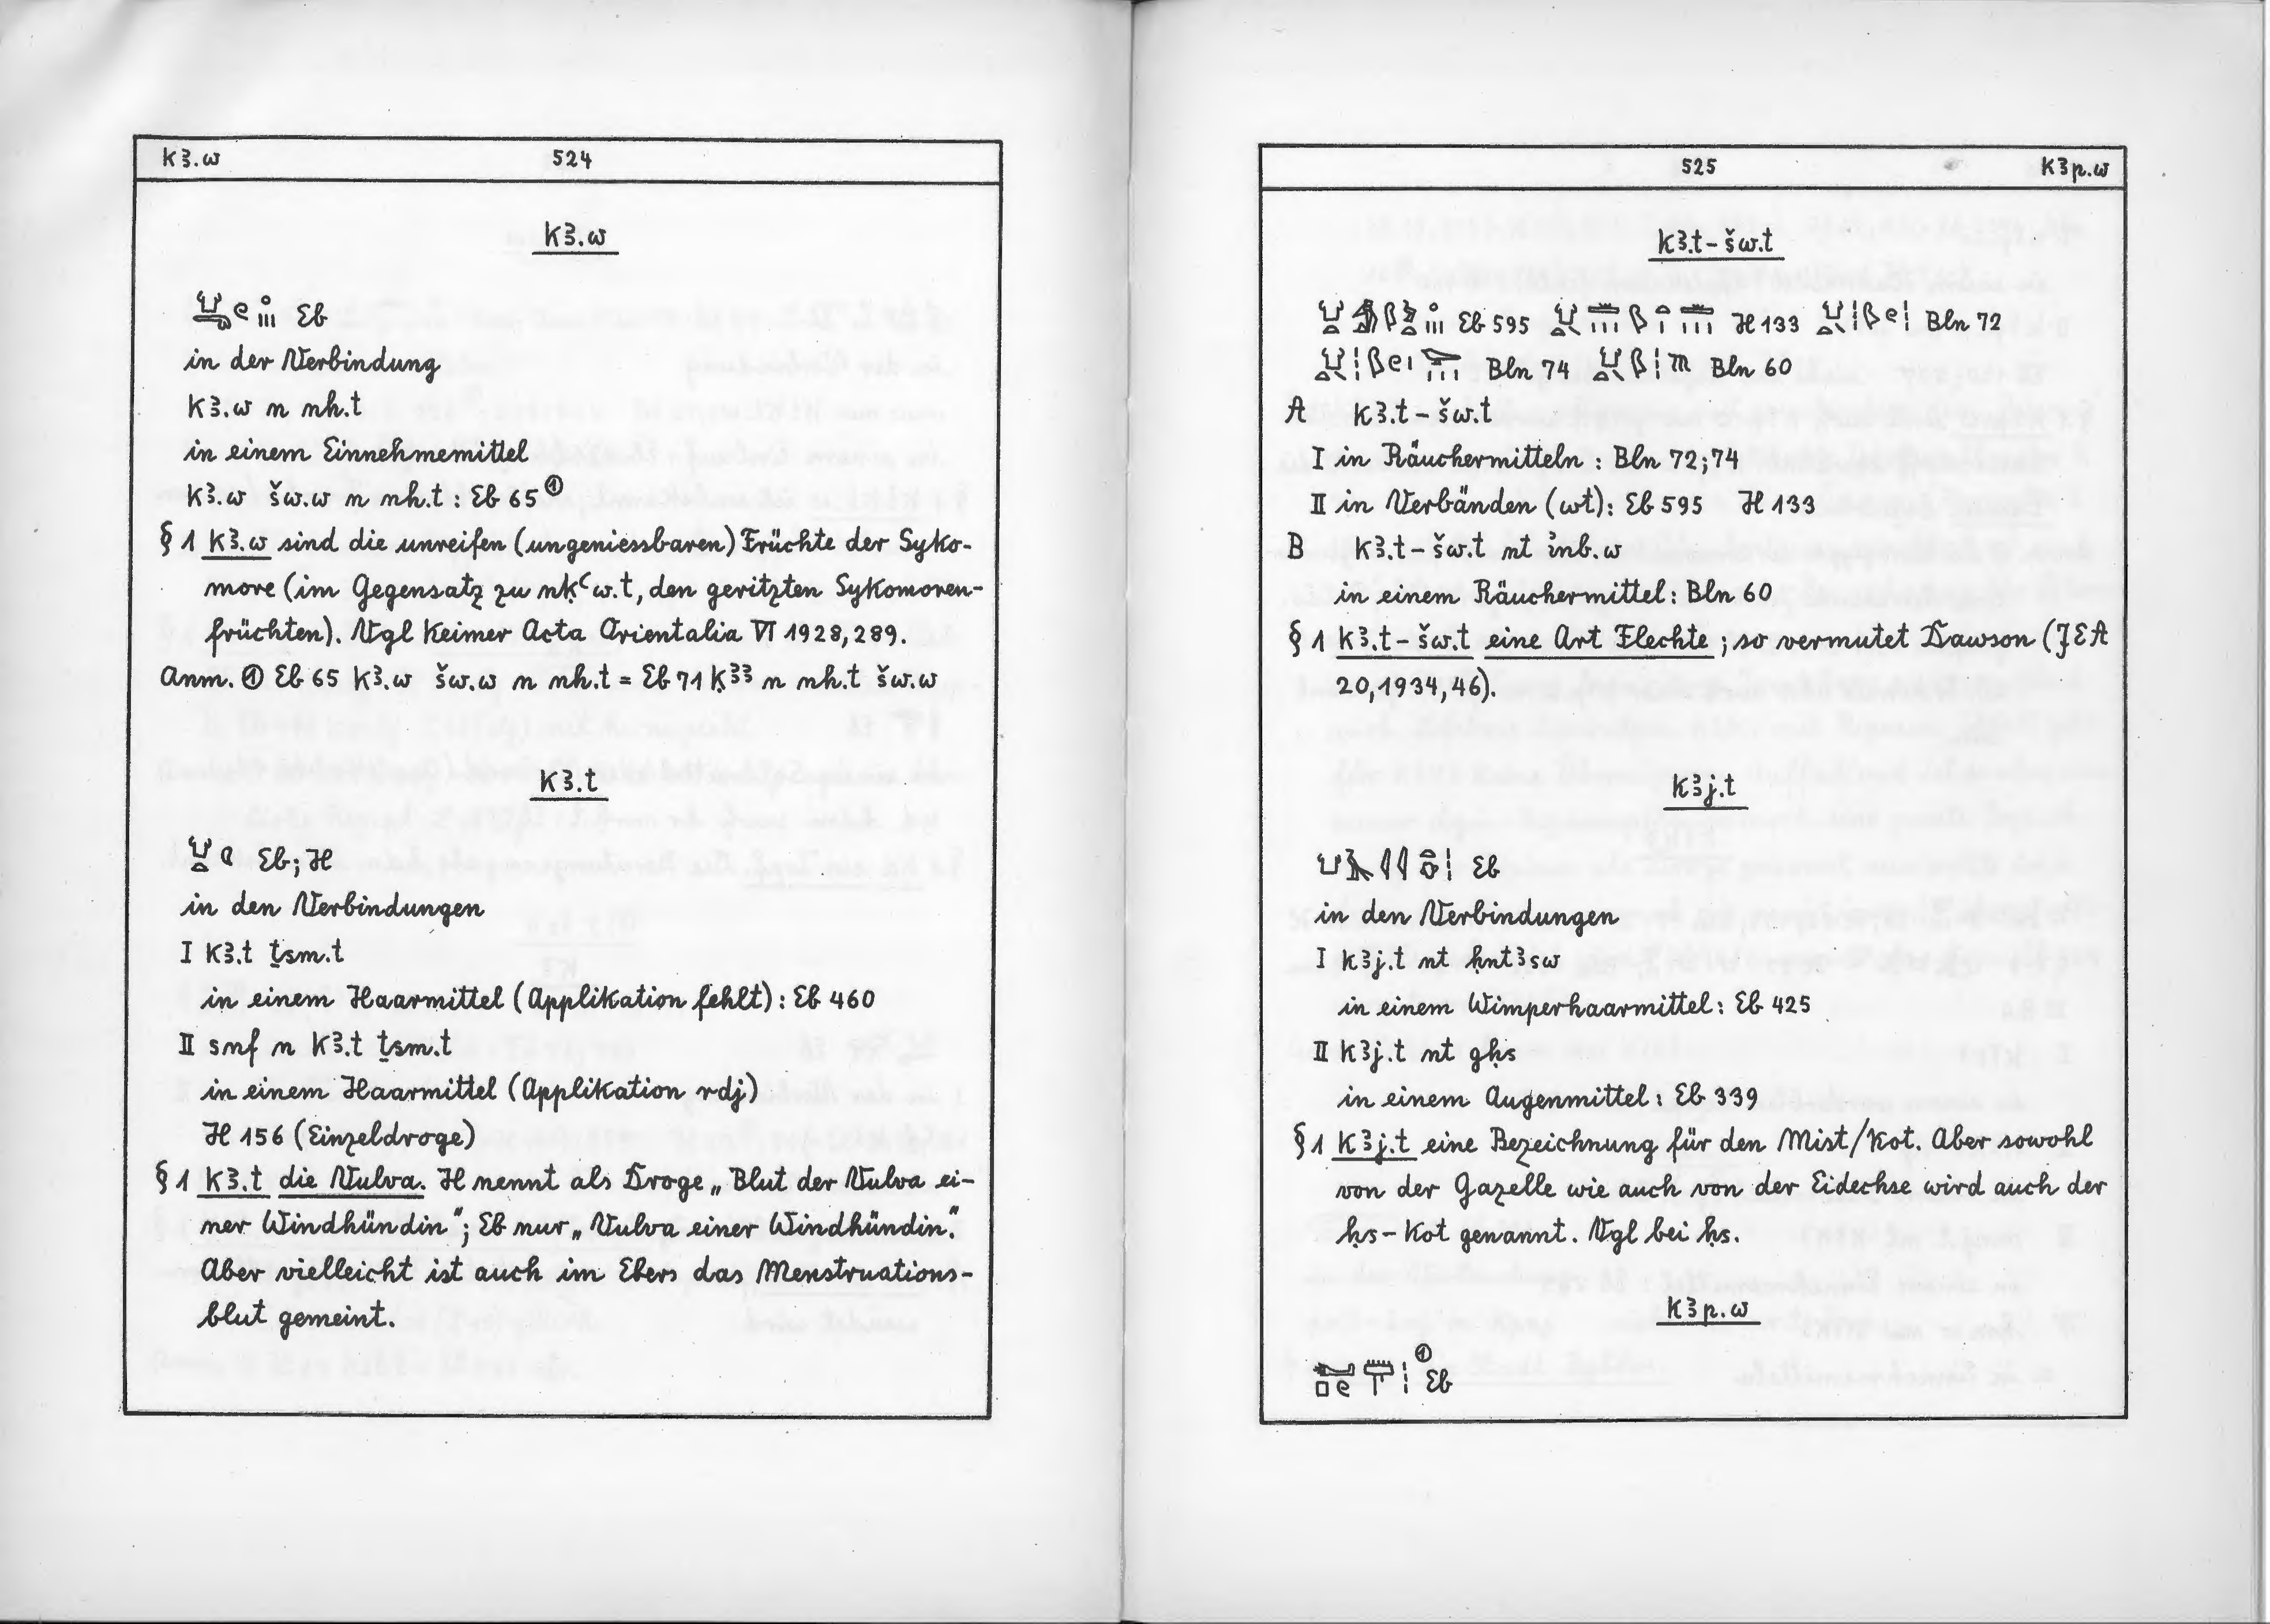 k3.w 524
k3.w
Eb
in der Verbindung
k3.w n nh.t
in einem Einnehmemittel
k3.w šw.w n nh.t : Eb 65 ①
§ 1 k3.w sind die unreifen (ungeniessbaren) Früchte der Syko-
more (im Gegensatz zu nḳꜥw.t, den geritzten Sykomoren-
früchten). Vgl Keimer Acta Orientalia VI 1928, 289.
Anm. ① Eb 65 k3.w šw.w n nh.t = Eb 71 ḳ33 n nh.t šw.w
k3.t
Eb; H
in den Verbindungen
I k3.t ṯsm.t
in einem Haarmittel (Applikation fehlt) : Eb 460
II snf n k3.t ṯsm.t
in einem Haarmittel (Applikation rdj)
H 156 (Einzeldroge)
§ 1 k3.t die Vulva. H nennt als Droge „Blut der Vulva ei-
ner Windhündin"; Eb nur „Vulva einer Windhündin".
Aber vielleicht ist auch im Ebers das Menstruations-
blut gemeint.
525 k3p.w
k3.t-šw.t
Eb 595 H 133 Bln 72
Bln 74 Bln 60
A k3.t-šw.t
I in Räuchermitteln : Bln 72; 74
II in Verbänden (wt): Eb 595 H 133
B k3.t-šw.t nt i͗nb.w
in einem Räuchermittel: Bln 60
§ 1 k3.t-šw.t eine Art Flechte; so vermutet Dawson (JEA
20, 1934, 46).
k3j.t
Eb
in den Verbindungen
I k3j.t nt ḥnt3sw
in einem Wimperhaarmittel: Eb 425
II k3j.t nt gḥs
in einem Augenmittel: Eb 339
§ 1 k3j.t eine Bezeichnung für den Mist/Kot. Aber sowohl
von der Gazelle wie auch von der Eidechse wird auch der
ḥs-Kot genannt. Vgl bei ḥs.
k3p.w
① Eb